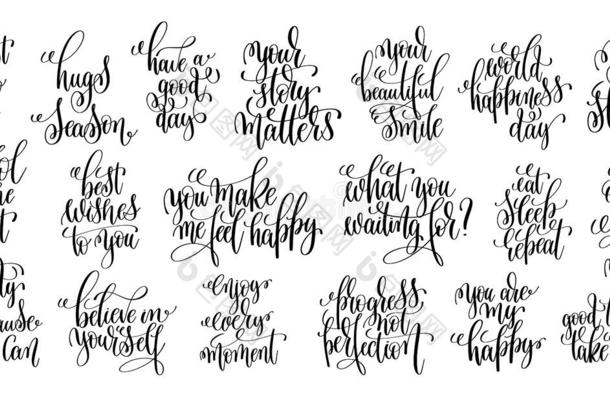 hugs
season
have a
good
day
your
story
matters
your
beautiful
smile
world
happiness
day
best
wishes
to you
you make
me feel happy
what you
waiting for?
eat
sleep
repeat
believe in
yourself
enjoy
every
moment
progress
not
perfection
you are
my
happy
can
good
take